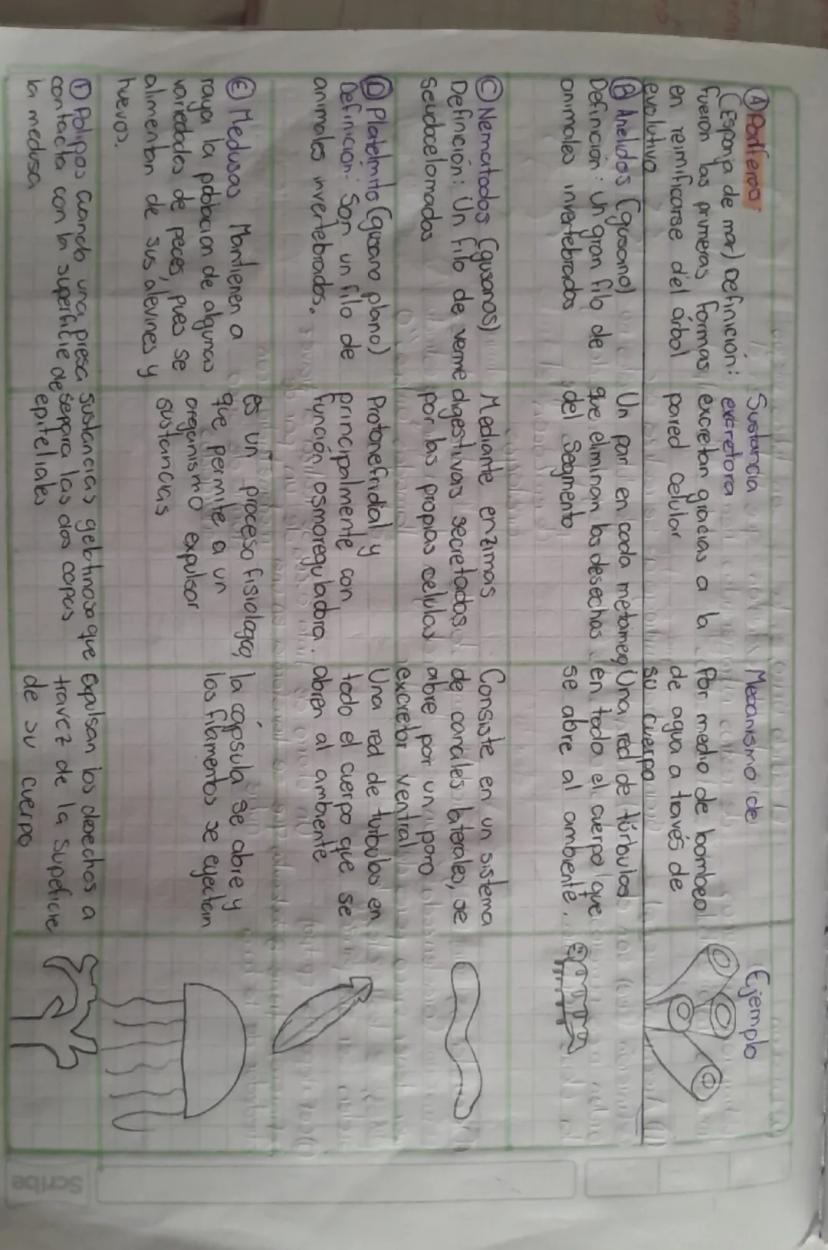 Sustancia excretora
Mecanismo de
Ejemplo
Ⓐ Poríferos:
(Esponja de mar) Definición:
fueron las primeras formas
en reimificarse del árbol
evolutivo
excretan gracias a la
pared celular
Por medio de bombeo
de agua a través de
su cuerpo
Ⓑ Anelidos (gusano)
Definición: un gran filo de
animales invertebrados
Un par en cada metameg
que eliminan los desechos
del segmento
Una red de túrbulos
en todo el cuerpo que
se abre al ambiente.
Ⓒ Nematodos (gusanos)
Definición: Un filo de verme
seudocelomados
Mediante enzimas
digestivas secretadas
por las propias celulas
Consiste en un sistema
de canales laterales, se
abre por un poro
excretor ventral
Ⓓ Platelminto (gusano plano)
Definición: Son un filo de
animales invertebrados.
Protonefridial y
principalmente con
función osmoreguladora.
Una red de turbulos en
todo el cuerpo que se
abren al ambiente
Ⓔ Medusas Mantienen a
raya la poblacion de algunas
variedades de peces, pues se
alimentan de sus alevines y
huevos.
es un proceso fisiologico,
que permite a un
organismo expulsar
sustancias
la cápsula se abre y
los filamentos se eyectan
Ⓕ Polipos cuando una presa
contacta con la superficie de
la medusa
sustancias gelatinosa que
separa las dos capas
epiteliales
Expulsan los desechos a
travez de la superficie
de su cuerpo
Scribe